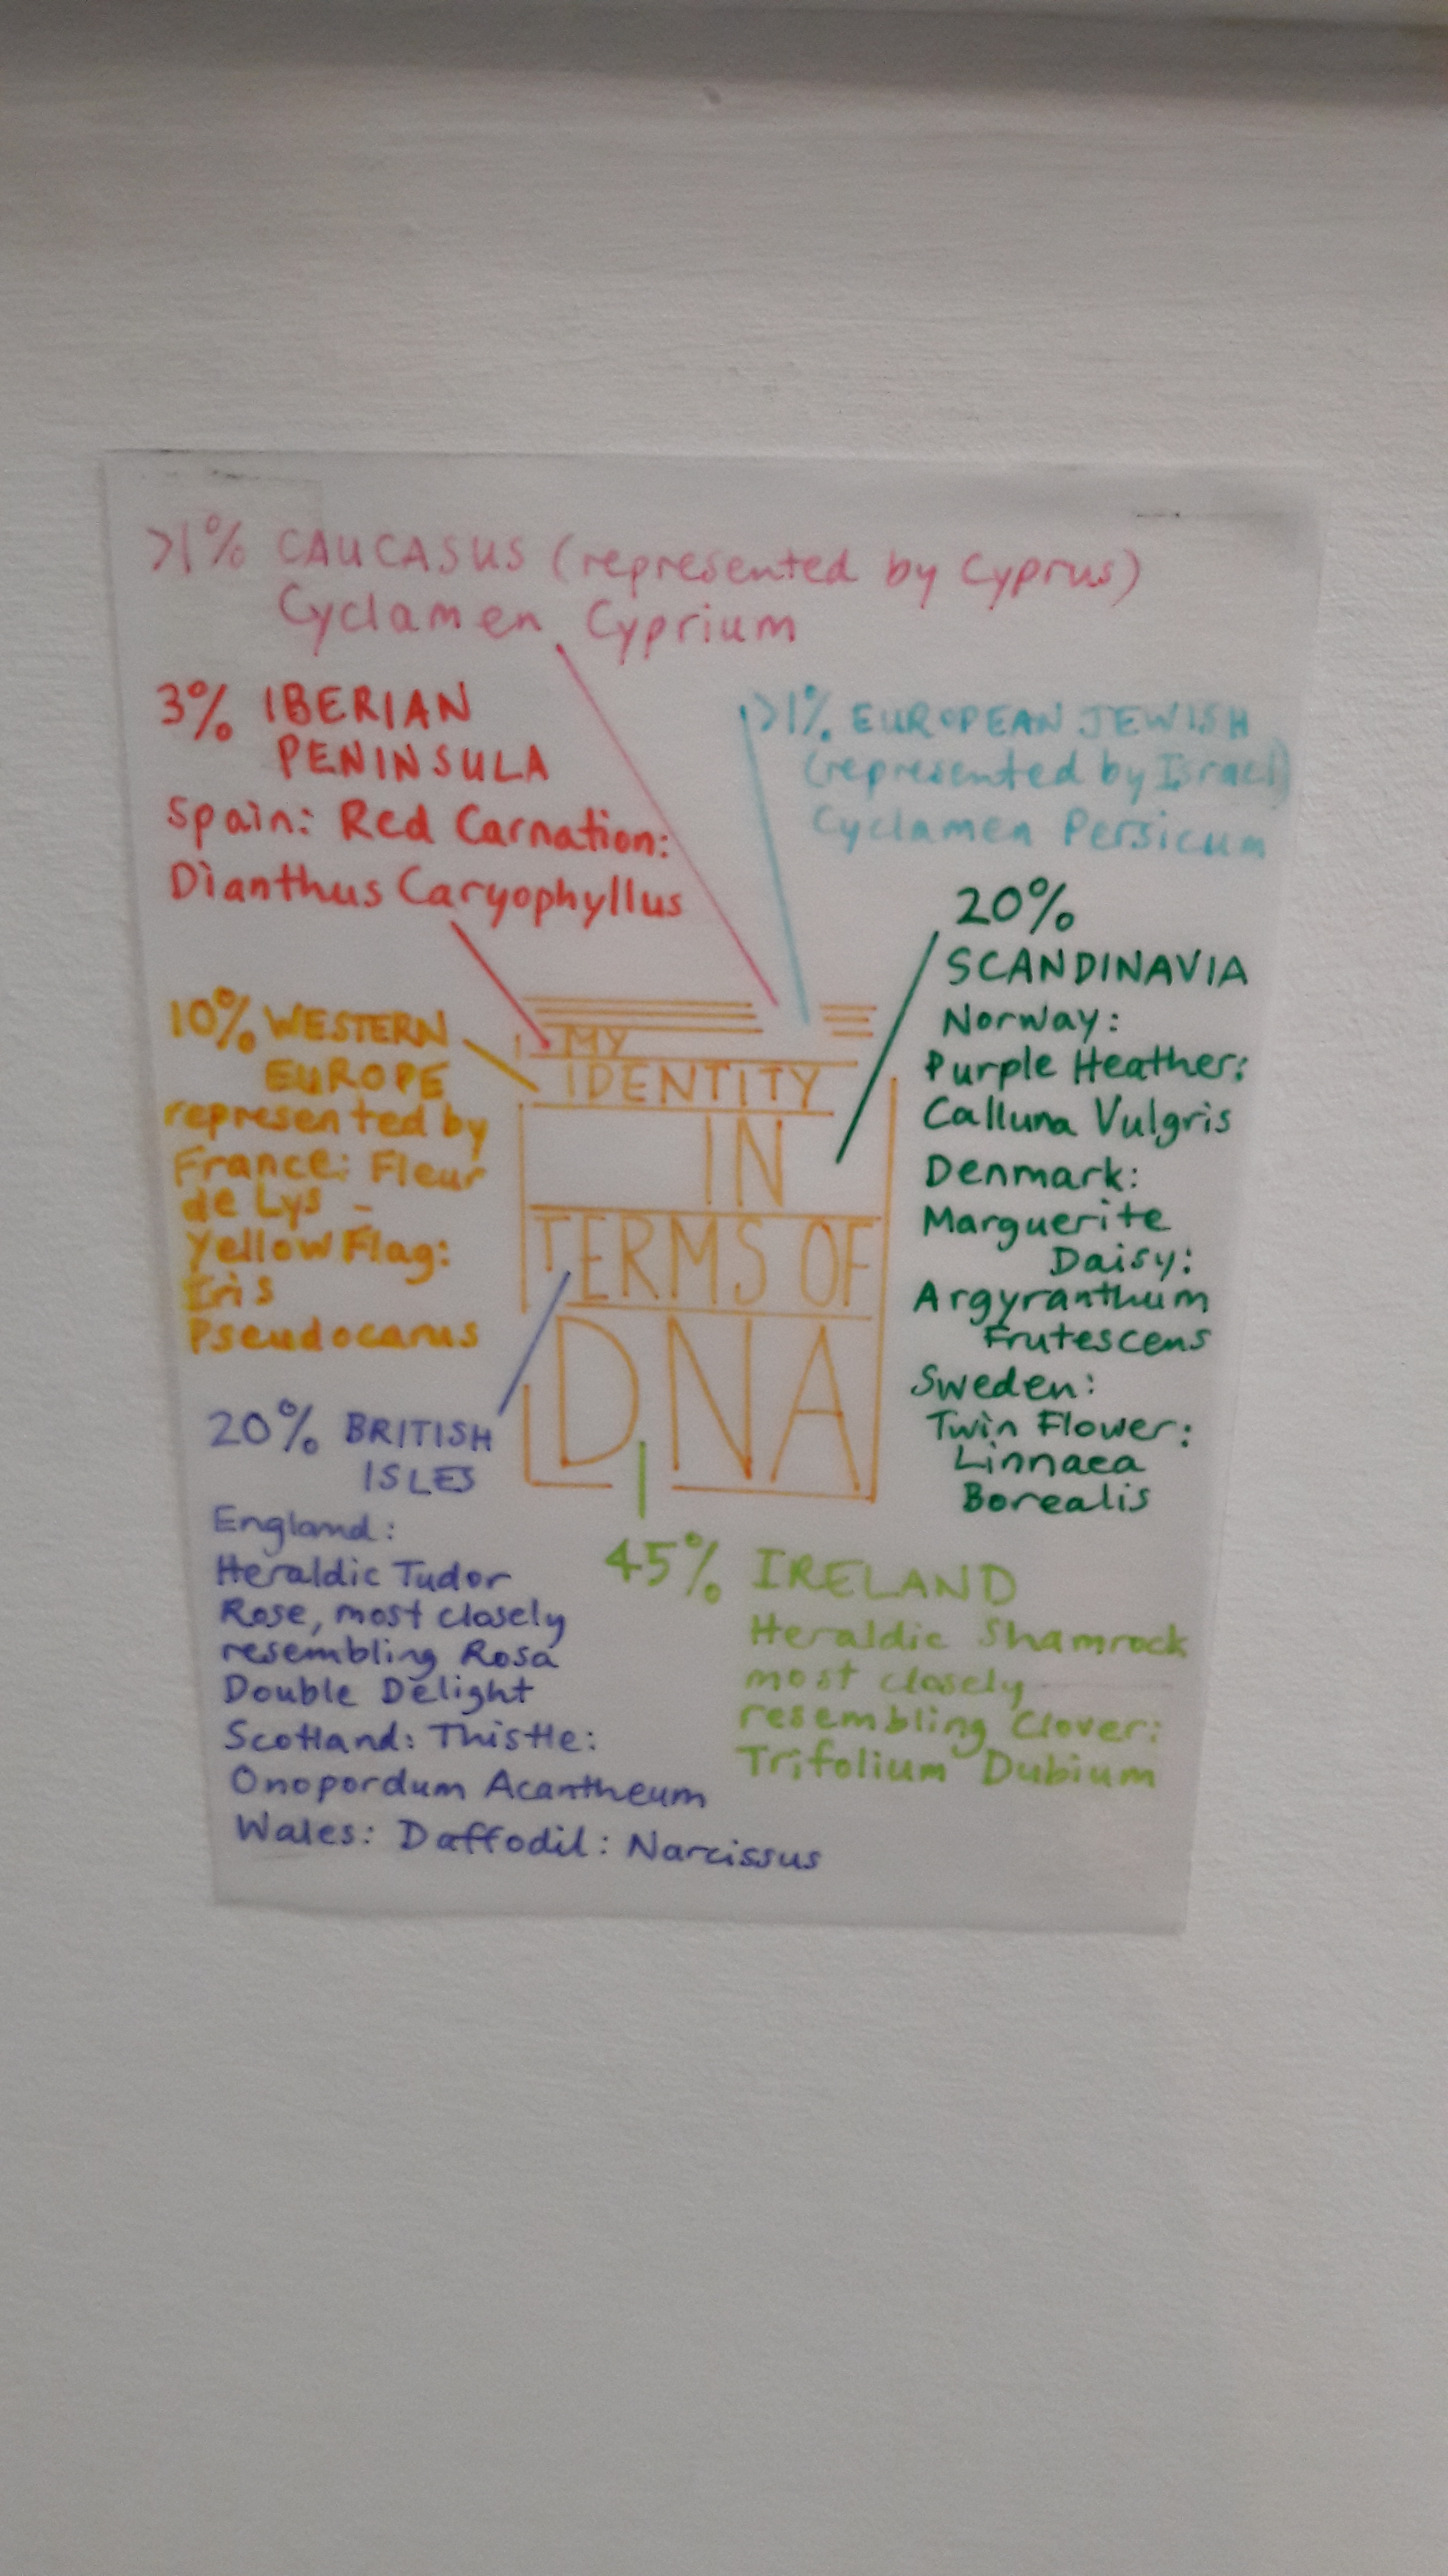 >1% CAUCASUS (represented by Cyprus)
Cyclamen Cyprium
3% IBERIAN
PENINSULA
Spain: Red Carnation:
Dianthus Caryophyllus
>1% EUROPEAN JEWISH
(represented by Israel)
Cyclamen Persicum
20%
SCANDINAVIA
Norway:
Purple Heather:
Calluna Vulgris
Denmark:
Marguerite
Daisy:
Argyranthum
Frutescens
Sweden:
Twin Flower:
Linnaea
Borealis
10% WESTERN
EUROPE
represented by
France: Fleur
de Lys -
Yellow Flag:
Iris
Pseudocarus
MY
IDENTITY
IN
TERMS OF
DNA
20% BRITISH
ISLES
England:
Heraldic Tudor
Rose, most closely
resembling Rosa
Double Delight
Scotland: Thistle:
Onopordum Acantheum
Wales: Daffodil: Narcissus
45% IRELAND
Heraldic Shamrock
most closely
resembling Clover:
Trifolium Dubium